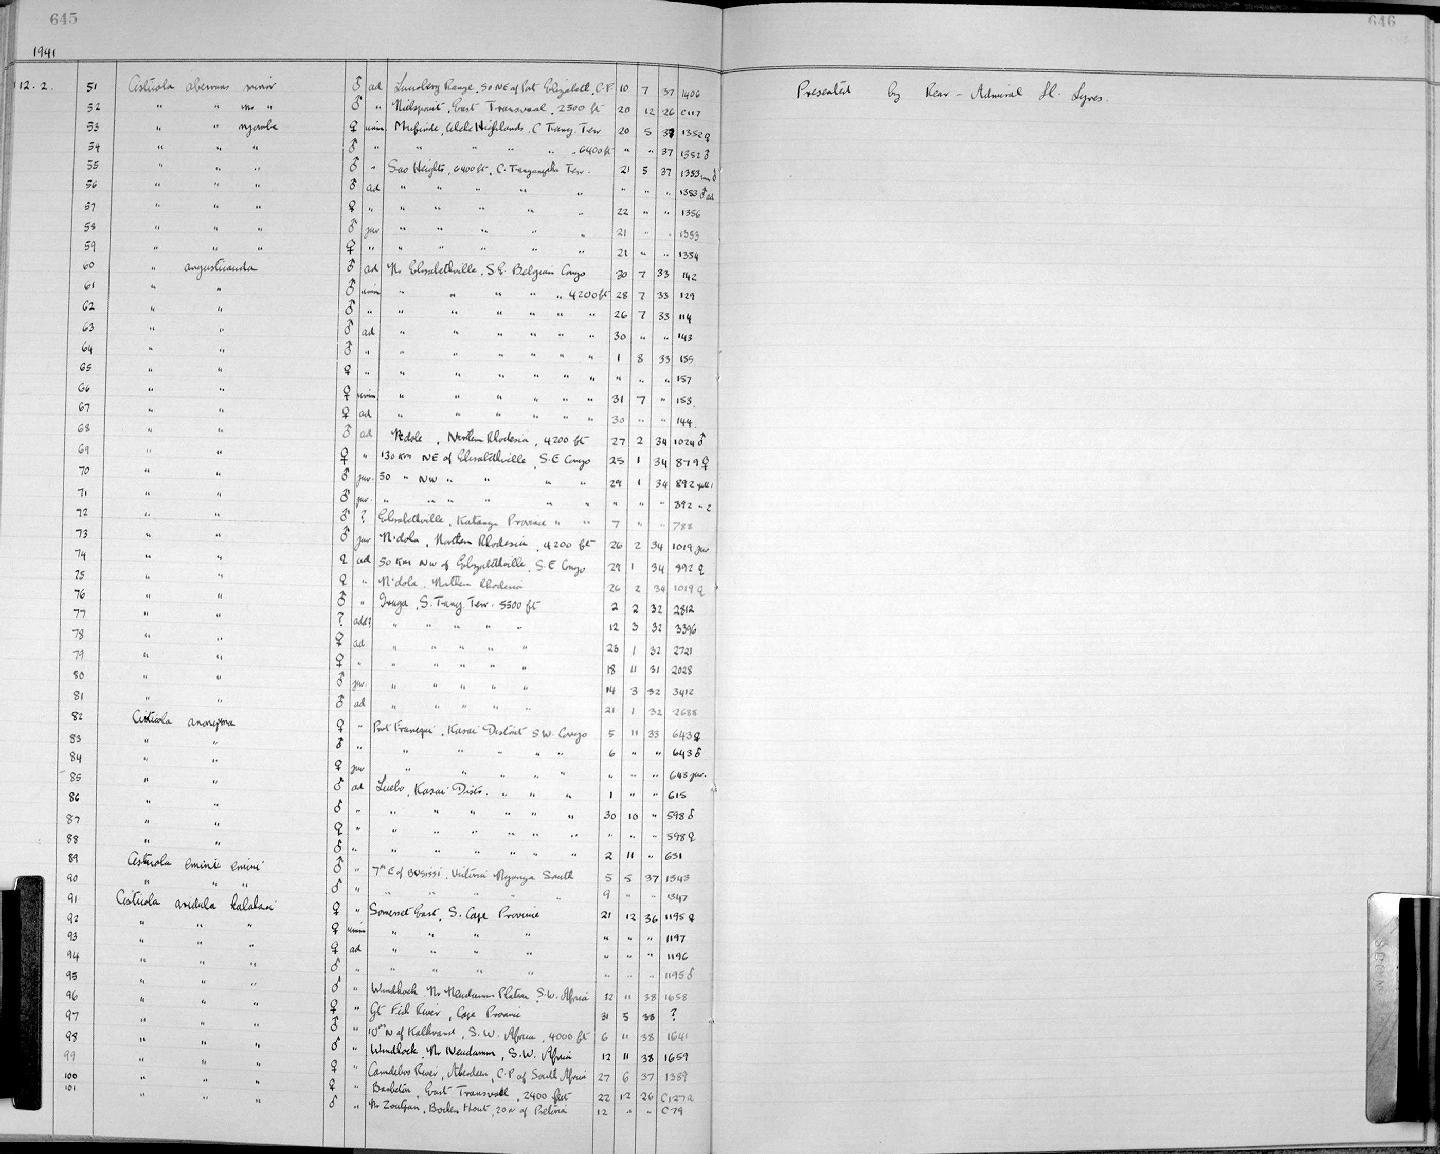 645
646
1941
112. 2. 51 Cisticola aberrans minor ♂ ad Lunsberg Range, 50 NE of Port Elizabeth, C.P. 10 7 37 1406 Presented by Rear-Admiral H. Lynes.
52 " " " " ♂ " Nielspruit, East Transvaal, 2500 ft 20 12 26 C117
53 " " njombe ♀ Highlands, C. Tang. Terr 20 5 37 1352 ♀
54 " " " ♂ " " " " " 6400 ft " " 37 1352 ♂
55 " " " ♂ " Sao Heights, 6400 ft, C. Tanganyika Terr. 21 5 37 1353 ♂
56 " " " ♂ ad " " " " " " " " 1353 ♂ ad
57 " " " ♀ " " " " " " 22 " " 1356
58 " " " ♂ juv " " " " " 21 " " 1353
59 " " " ♀ " " " " " " 21 " " 1354
60 " angusticauda ♂ ad Nr Elisabethville, S.E. Belgian Congo 30 7 33 142
61 " " ♂ " " " " " 4200 ft 28 7 33 129
62 " " ♂ " " " " " " " 26 7 33 114
63 " " ♂ ad " " " " " " 30 " " 143
64 " " ♂ " " " " " " " 1 8 33 155
65 " " ♀ " " " " " " " " " " 157
66 " " ♀ " " " " " " 31 7 " 153
67 " " ♀ ad " " " " " " 30 " " 144
68 " " ♂ ad N'dola, Northern Rhodesia, 4200 ft 27 2 34 1024 ♂
69 " " ♀ " 130 Km NE of Elisabethville, S.E Congo 25 1 34 879 ♀
70 " " ♂ juv. 50 " NW " " " " 29 1 34 892
71 " " ♂ juv. " " " " " " " " " " 892 " 2
72 " " ♂ ? Elisabethville, Katanga Province " " 7 " " 788
73 " " ♂ juv N'dola, Northern Rhodesia, 4200 ft 26 2 34 1019 juv
74 " " ♀ ad 50 Km NW of Elizabethville, S.E Congo 29 1 34 892 ♀
75 " " ♀ " N'dola, Northern Rhodesia 26 2 34 1019 ♀
76 " " ♂ " Iringa, S. Tang. Terr. 5500 ft 2 2 32 2812
77 " " ? ad? " " " " " 12 3 32 3396
78 " " ♀ ad " " " " " 23 1 32 2721
79 " " ♀ " " " " " " 18 11 31 2028
80 " " ♂ juv. " " " " " 14 3 32 3412
81 " " ♂ ad " " " " " 21 1 32 2688
82 Cisticola anonyma ♀ " Port Francqui, Kasai District S.W. Congo 5 11 33 643 ♀
83 " " ♂ " " " " " " 6 " " 643 ♂
84 " " ♀ juv " " " " " " " " 643 juv.
85 " " ♂ ad Luebo, Kasai Dist. " " " 1 " " 615
86 " " ♂ " " " " " " " 30 10 " 598 ♂
87 " " ♀ " " " " " " " " " " 598 ♀
88 " " ♂ " " " " " " " 2 11 " 631
89 Cisticola emini emini ♂ " 7m E of Busissi, Victoria Nyanza South 5 5 37 1343
90 " " " ♂ " " " " " " 9 " " 1347
91 Cisticola aridula kalahari ♀ " Somerset East, S. Cape Province 21 12 36 1195 ♀
92 " " " ♀ " " " " " " " 1197
93 " " " ♀ ad " " " " " " " 1196
94 " " " ♂ " " " " " " " " 1195 ♂
95 " " " ♂ " Windhoek, Nr Neudamm Plateau, S.W. Africa 12 11 38 1658
96 " " " ♀ " Gt Fish River, Cape Province 31 5 38 ?
97 " " " ♂ " 10m N of Kalkrand, S.W. Africa, 4000 ft 6 11 38 1641
98 " " " ♂ " Windhoek, Nr Neudamm, S.W. Africa 12 11 38 1659
99 " " " ♀ " Camdeboo River, Aberdeen, C.P. of South Africa 27 6 37 1389
100 " " " ♀ " Barberton, East Transvaal, 2400 feet 22 12 26 C127a
101 " " " ♂ " Nr Zoutpan, 20 N of Pretoria 12 " " C79